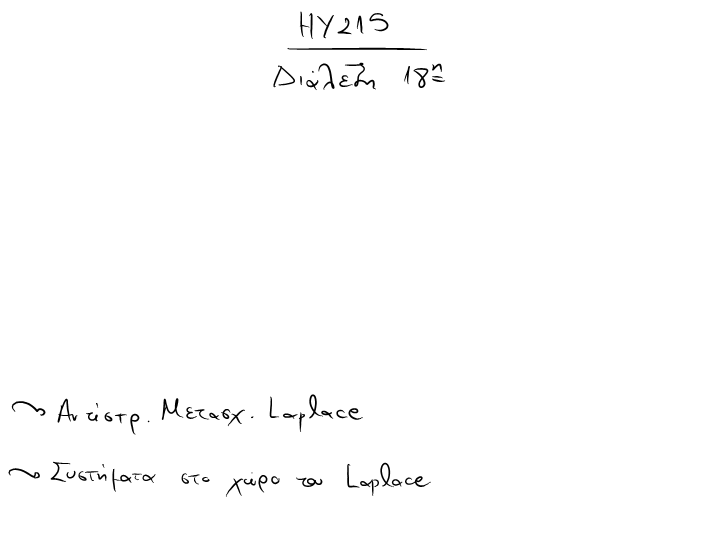 HY215
Διάλεξη 18η
~ Αντίστρ. Μετασχ. Laplace
~ Συστήματα στο χώρο του Laplace